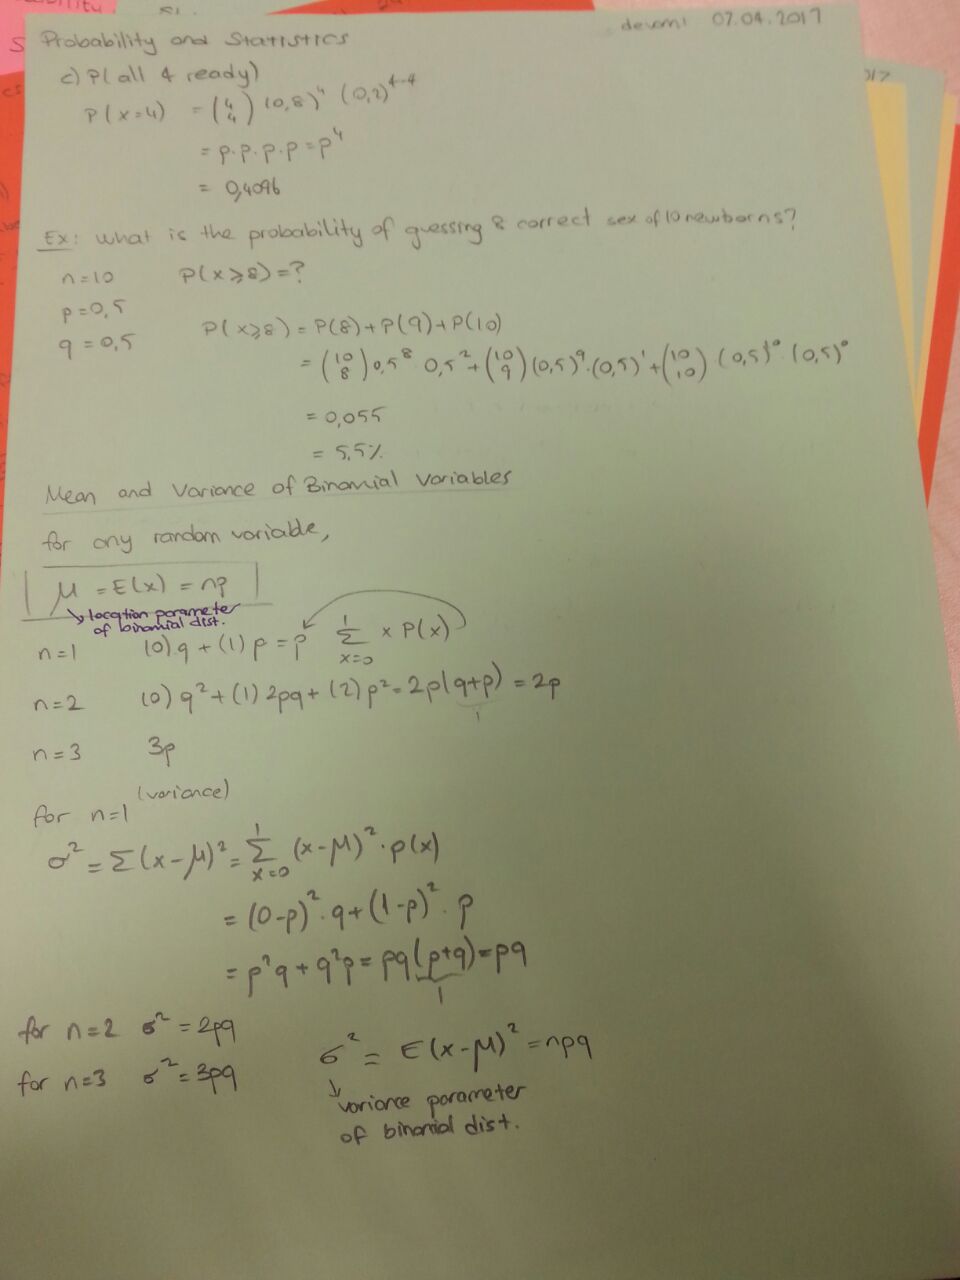 devamı 07.04.2017
Probability and Statistics
c) P(all 4 ready)
P(x=4) = (4 4) (0,8)⁴ (0,2)⁴⁻⁴
= p.p.p.p = p⁴
= 0,4096
Ex: what is the probability of guessing 8 correct sex of 10 newborns?
n=10 P(x≥8)=?
p=0,5
q=0,5 P(x≥8) = P(8)+P(9)+P(10)
= (10 8) 0,5⁸ 0,5² + (10 9) (0,5)⁹.(0,5)¹ + (10 10) (0,5)¹⁰.(0,5)⁰
= 0,055
= 5,5%
Mean and Variance of Binomial Variables
for any random variable,
μ = E(x) = np
↘ location parameter
of binomial dist.
n=1 (0).q + (1)p = p Σ¹ₓ₌₀ x P(x)
n=2 (0) q² + (1) 2pq + (2) p² = 2p(q+p) = 2p
1
n=3 3p
(variance)
for n=1
σ² = Σ(x-μ)² = Σ¹ₓ₌₀ (x-μ)².p(x)
= (0-p)².q + (1-p)².p
= p²q + q²p = pq(p+q) = pq
1
for n=2 σ² = 2pq
σ² = E(x-μ)² = npq
for n=3 σ² = 3pq
↓ variance parameter
of binomial dist.